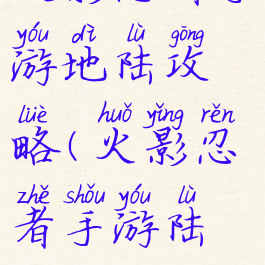 yóu dì lù gōng
游地陆攻
lüè huǒ yǐng rěn
略(火影忍
zhě shǒu yóu lù
者手游陆